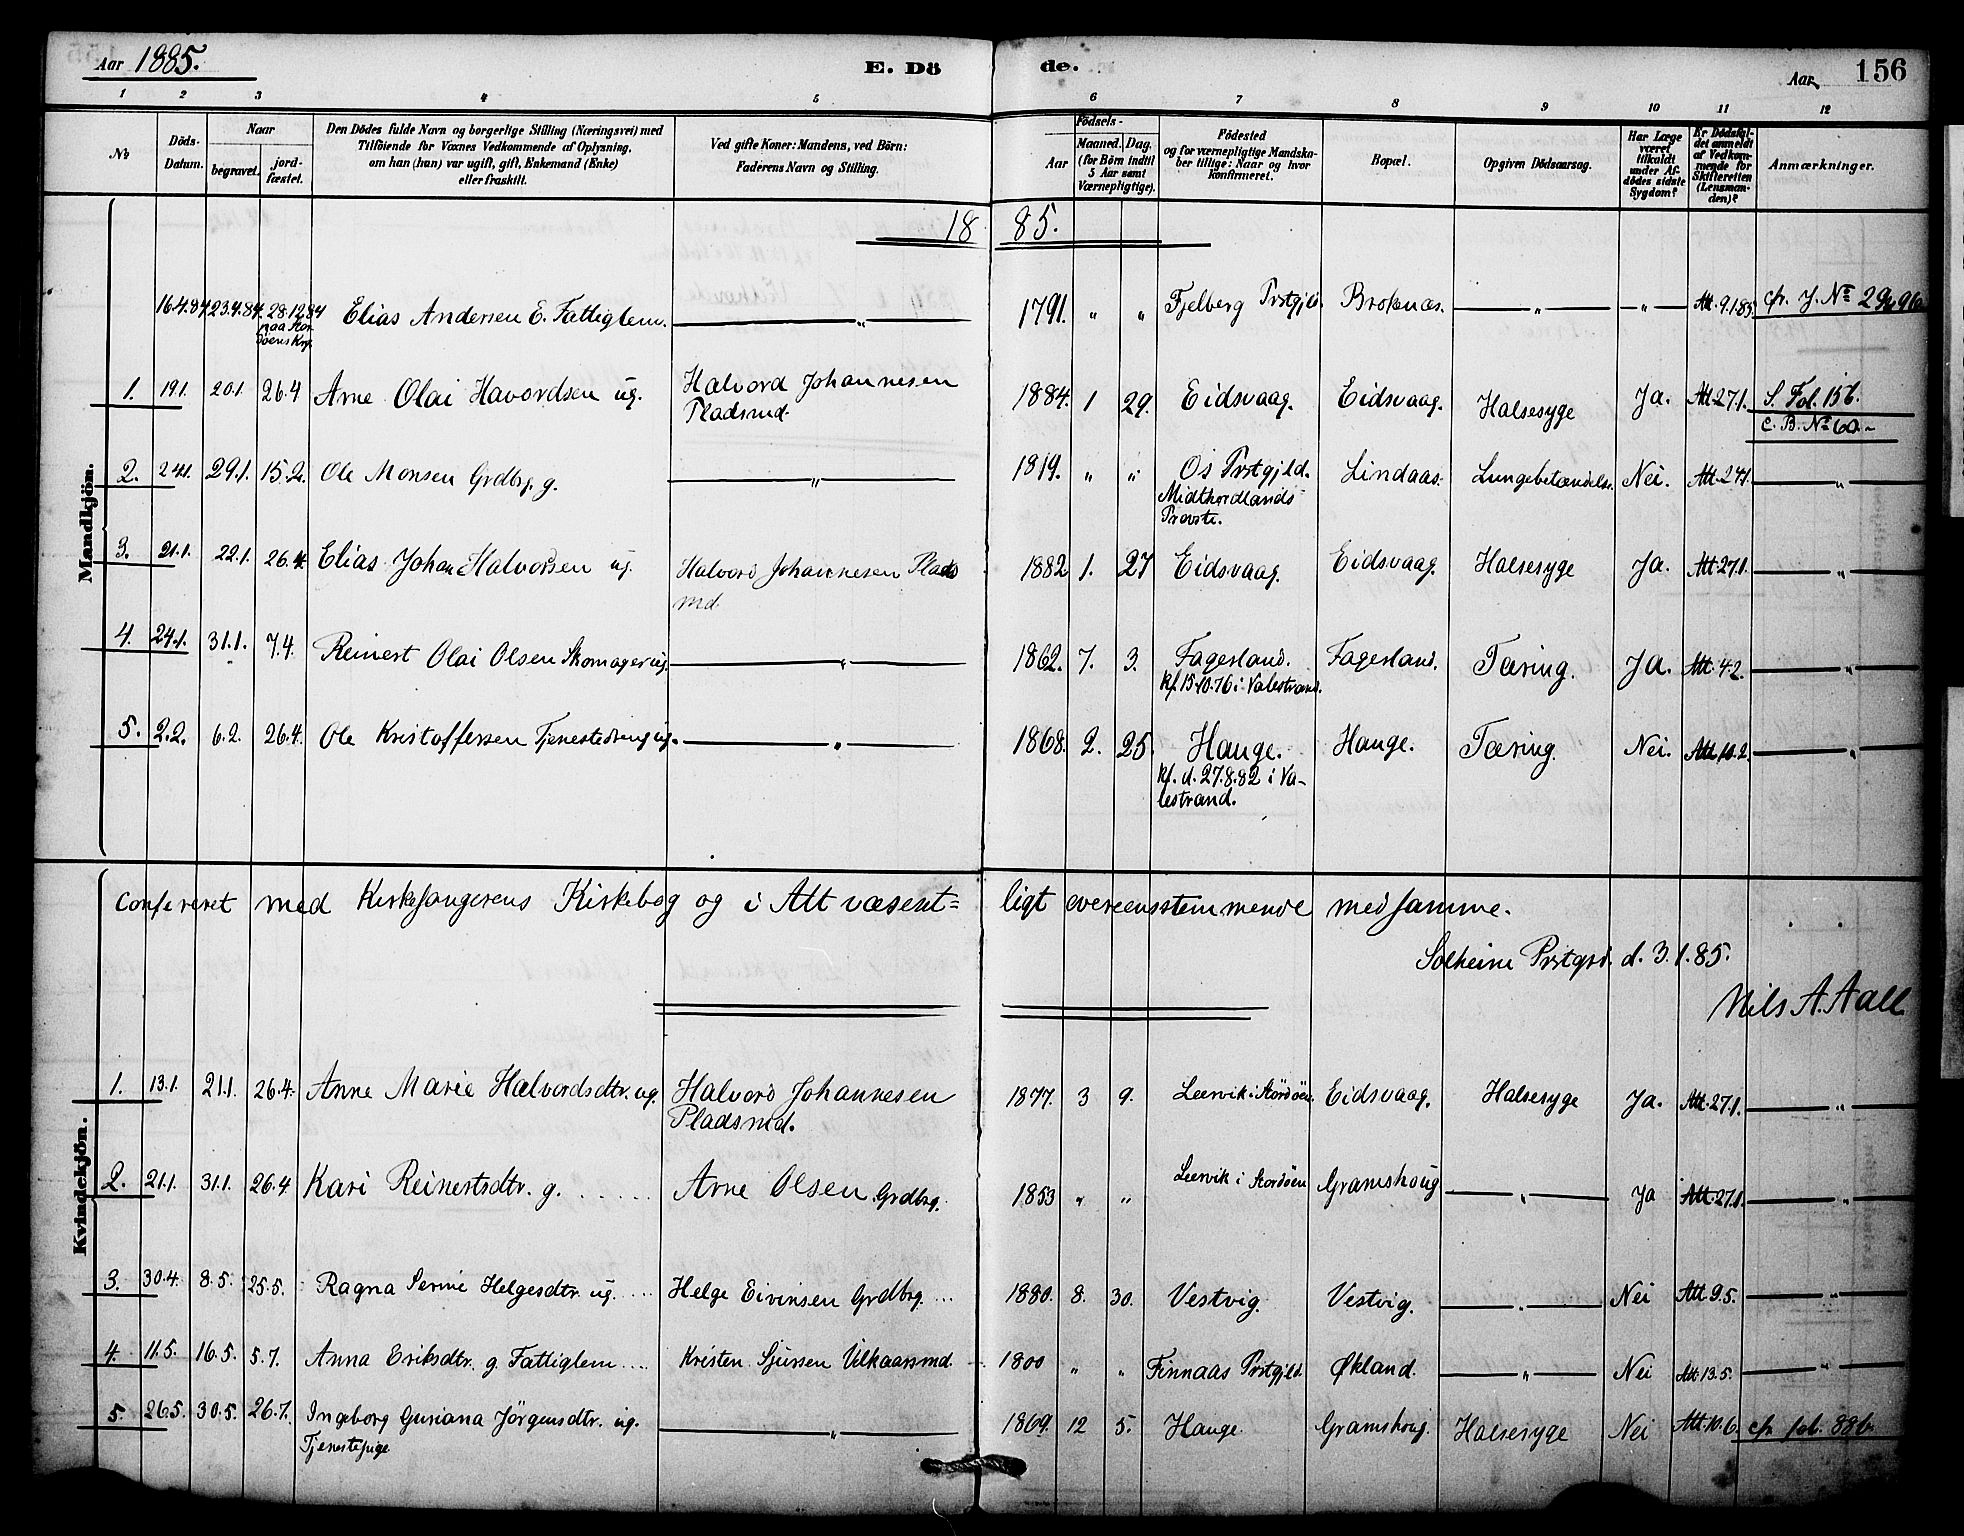 Aar 1885.
E. Dö de.
Aar 156
1 2 3 4 5 6 7 8 9 10 11 12
No
Döds-Datum.
Naar
begravet.
jord-fæstet.
Den Dödes fulde Navn og borgerlige Stilling (Næringsvei) med
Tilföiende for Voxnes Vedkommende af Oplysning,
om han (hun) var ugift, gift, Enkemand (Enke)
eller fraskilt.
Ved gifte Koner: Mandens, ved Börn:
Faderens Navn og Stilling.
Födsels-
Aar
Maaned. Dag.
(for Börn indtil
5 Aar samt
Værnepligtige).
Födested
og for værnepligtige Mandska-
ber tillige: Naar og hvor
konfirmeret.
Bopæl.
Opgiven Dödsaarsag.
Har Læge
været
tilkaldt
under Af-
dödes sidste
Sygdom?
Er Dödsfal-
det anmeldt
af Vedkom-
mende for
Skifteretten
(Lensman-
den)?
Anmærkninger.
18 85.
Mandkjön.
16.4.84 23.4.84 28.12.84 Elias Andersen E. Fattiglem. — " — 1791. " " Fjelberg Prstgjld. Broknæs. — " — — " — Att. 9.1.85. cfr. J. No 29
paa Stor-
döens Krg.
1. 19.1. 20.1 26.4 Arne Olai Havordsen ug. Halvord Johannesen 1884. 1 29. Eidsvaag. Eidsvaag. Halsesyge Ja. Att. 27.1. S. Fol. 156.
Pladsmd. C. B. No 60.
2. 24.1. 29.1. 15.2. Ole Monsen Grdbrg. g. — " — 1819. " " Os Prstgjld. Lindaas. Lungebetændelse. Nei. Att. 27.1. — " —
Midthordlands
Provsti.
3. 21.1. 22.1. 26.4. Elias Johan Halvorsen ug. Halvord Johannesen Plads 1882 1. 27 Eidsvaag. Eidsvaag. Halsesyge Ja. Att. 27.1. — " —
md.
4. 24.1. 31.1. 7.4. Reinert Olai Olsen Skomager ug. — " — 1862. 7. 3. Fagerland. Fagerland. Tæring. Ja. Att. 4.2. — " —
kf. 15.10.76 i Valestrand.
5. 2.2. 6.2. 26.4. Ole Kristoffersen Tjenestedreng ug. — " — 1868. 2. 25. Hauge. Hauge. Tæring. Nei. Att. 10.2. — " —
kf. d. 27.8.82 i Va-
lestrand.
Confereret med Kirkesangerens Kirkebog og i Alt væsent= ligt overeensstemmende med samme.
Solheim Prstgrd. d. 3.1.85.
Nils A. Aall
Kvindekjön.
1. 13.1. 21.1. 26.4. Anne Marie Halvordsdtr. ug. Halvord Johannesen 1877. 3 9. Leervik i Stordöen. Eidsvaag. Halsesyge Ja. Att. 27.1. — " —
Pladsmd.
2. 21.1. 31.1. 26.4. Kari Reinertsdtr. g. Arne Olsen Grdbrg. 1853 " " Leervik i Stordöen Gramshoug — " — Ja Att. 27.1. — " —
3. 30.4. 8.5. 25.5. Ragna Serine Helgesdtr. ug. Helge Eivinsen Grdbrg. 1880. 8. 30. Vestvig. Vestvig. — " — Nei Att. 9.5. — " —
4. 11.5. 16.5. 5.7. Anna Eriksdtr. g. Fattiglem Kristen Sjursen Vilkaarsmd. 1800 " " Finnaas Prstgjld. Økland. — " — Nei Att. 13.5. — " —
5. 26.5. 30.5. 26.7. Ingeborg Guriana Jörgensdtr. ug. — " — 1869. 12 5. Hauge. Gramshoug. Halsesyge Nei Att. 10.6. cfr. fol. 88 b.
Tjenestepige